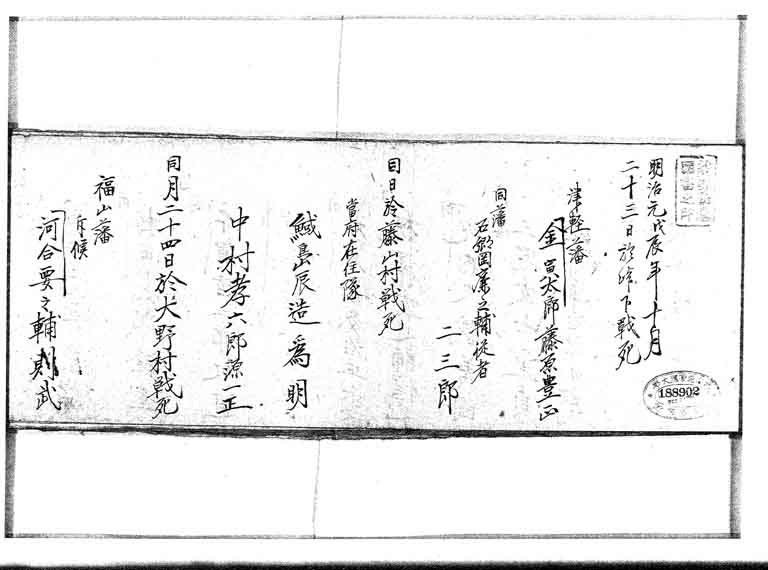 明治元戊辰年十月
二十三日於峠下戦死
津軽藩
金寅太郎藤原豊正
同藩
石郷岡廉之輔従者
二三郎
同日於藤山村戦死
當府在住隊
鰄島辰造為明
中村孝六郎源一正
同月二十四日於大野村戦死
福山藩
斥候
河合要之輔則武
188902